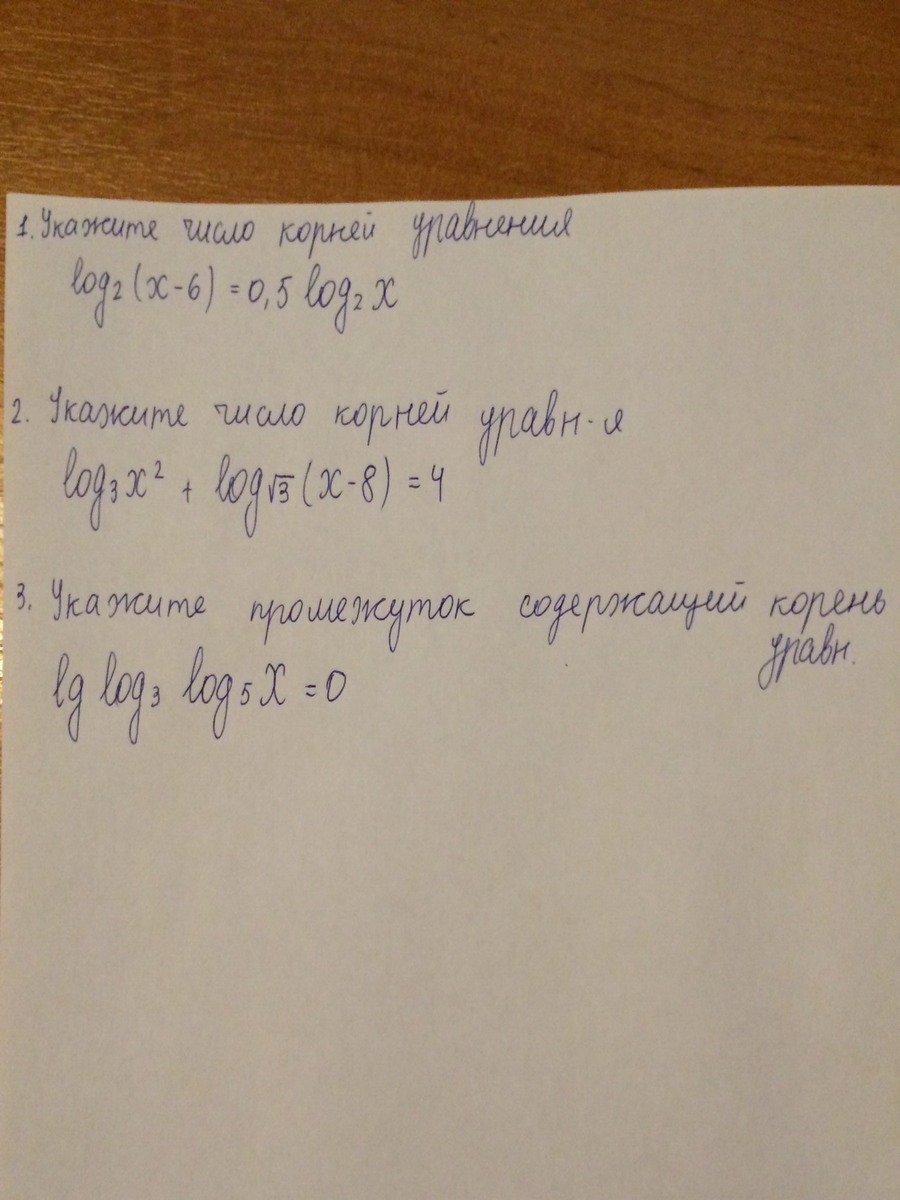 1. Укажите число корней уравнения
log₂(x-6) = 0,5 log₂ x
2. Укажите число корней уравн-я
log₃x² + log√3 (x-8) = 4
3. Укажите промежуток содержащий корень
уравн.
lg log₃ log₅ X = 0